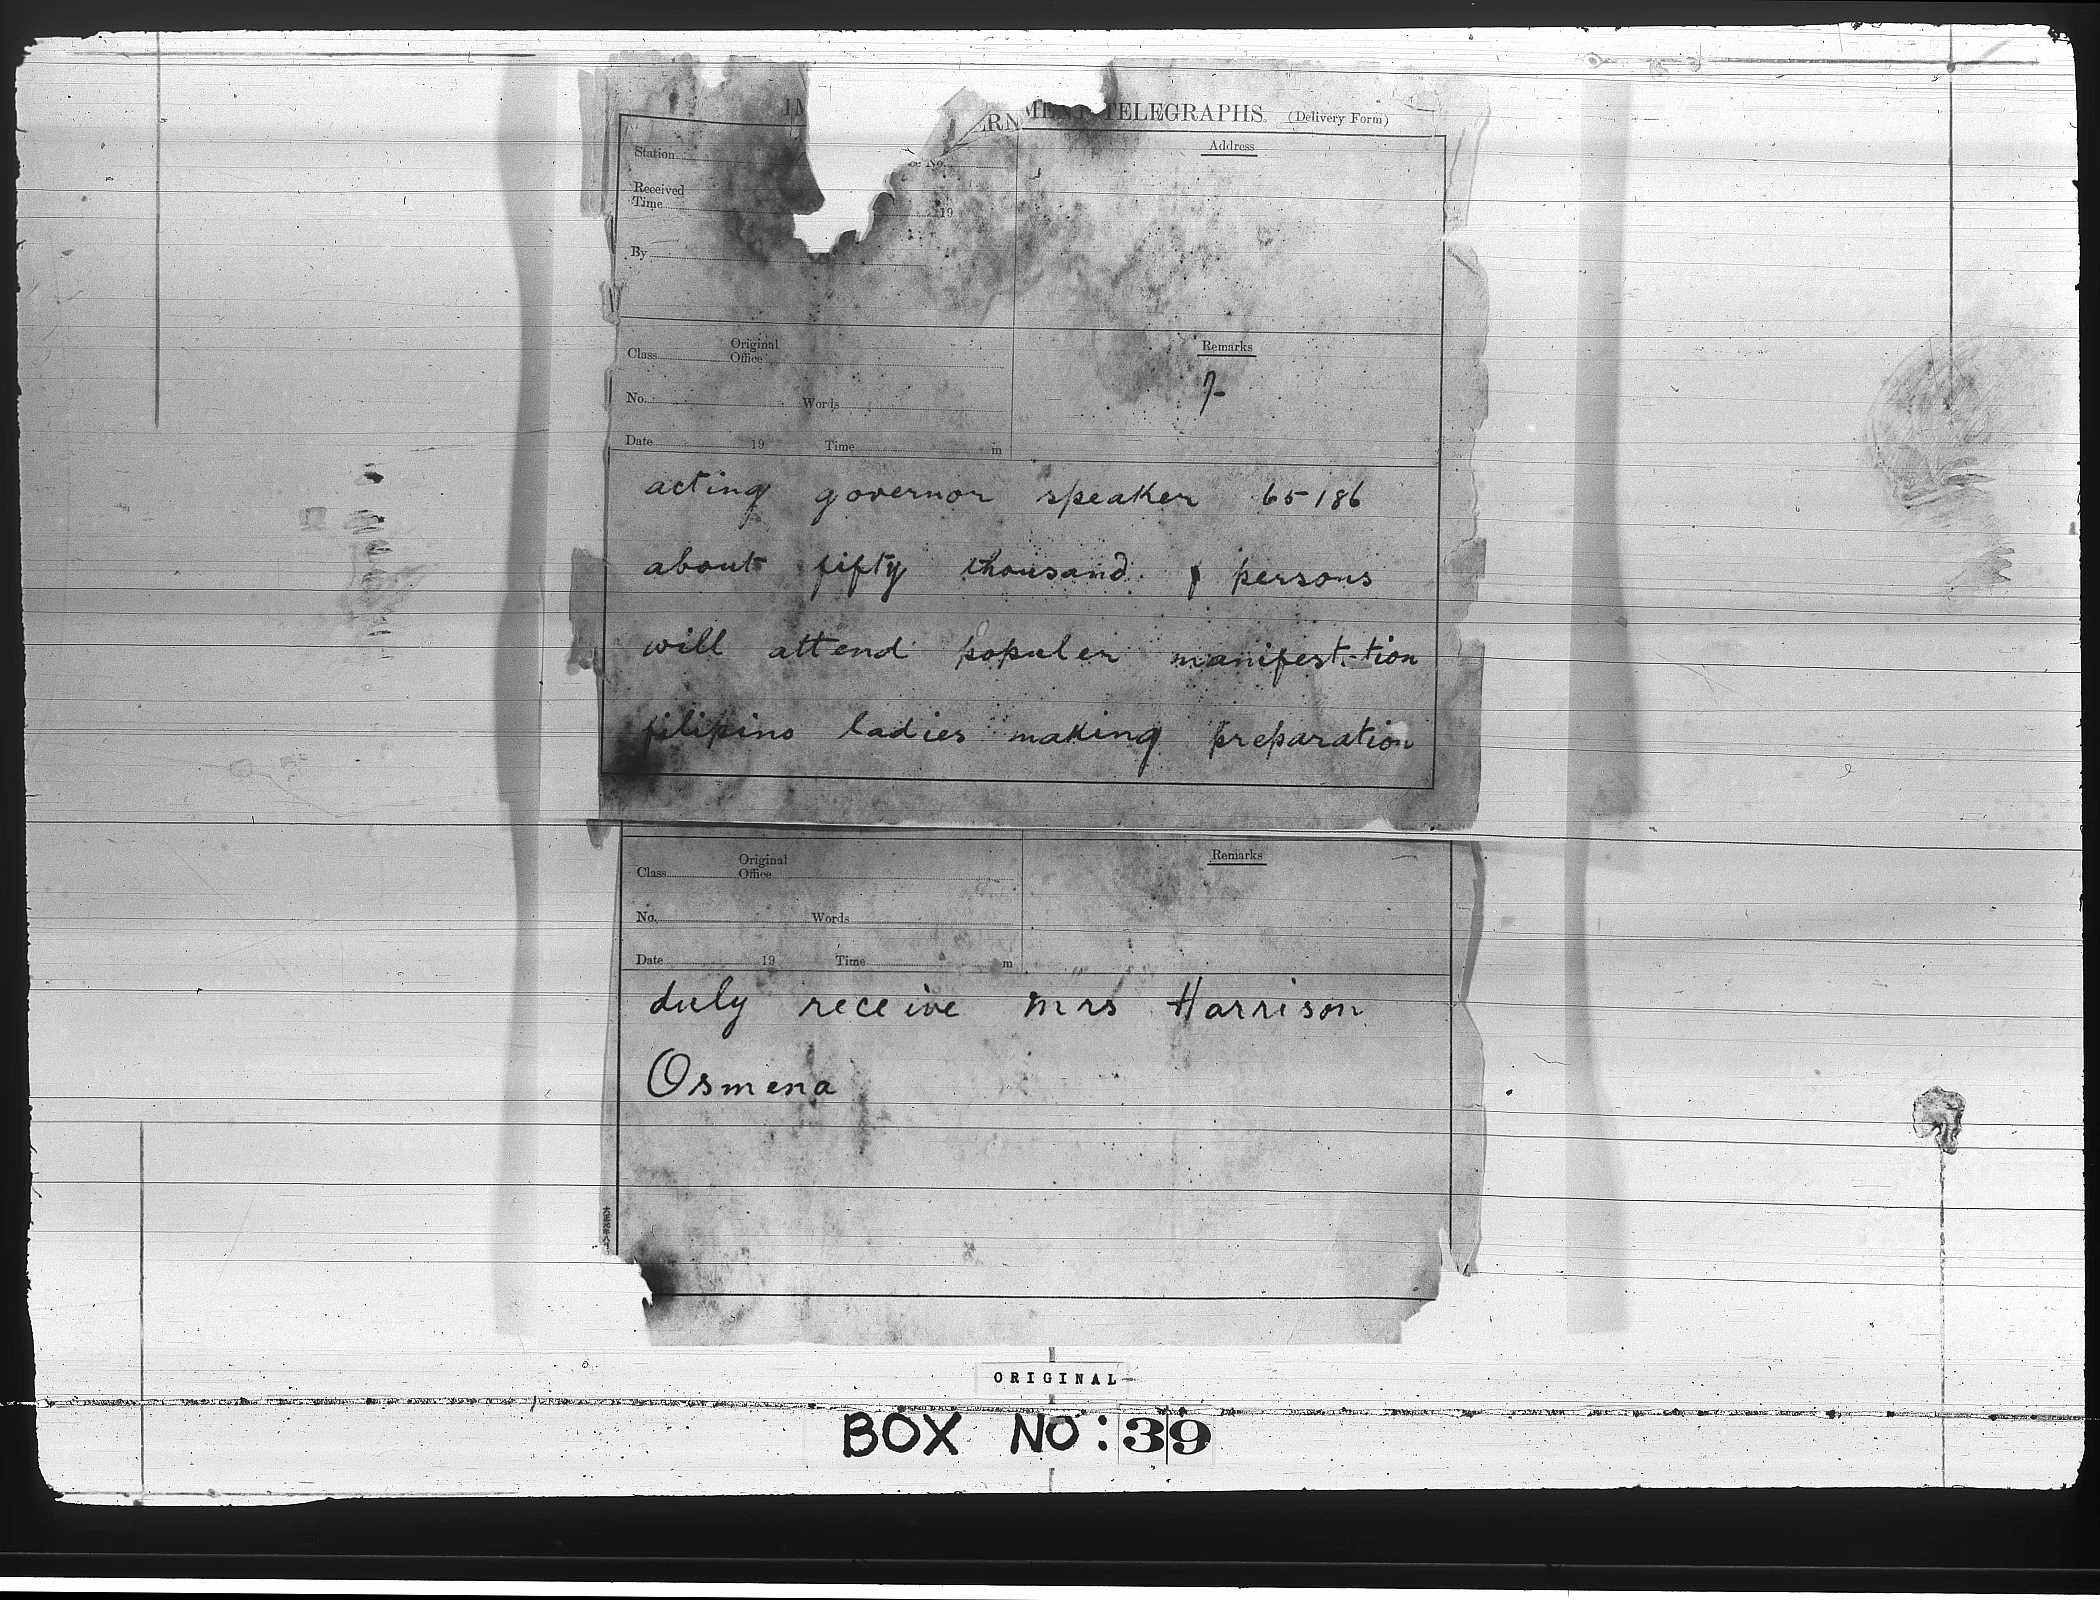 TELEGRAPHS. (Delivery Form)
Station
Address
Received
Time 19
By
Class Original Office
Remarks
7-
No. Words
Date 19 Time m
acting governor speaker 65-186
about fifty thousand persons
will attend populer manifest-tion
filipino ladies making preparation
Class Original Office
Remarks
No. Words
Date 19 Time m
duly receive mrs Harrison
Osmena
ORIGINAL
BOX NO: 39